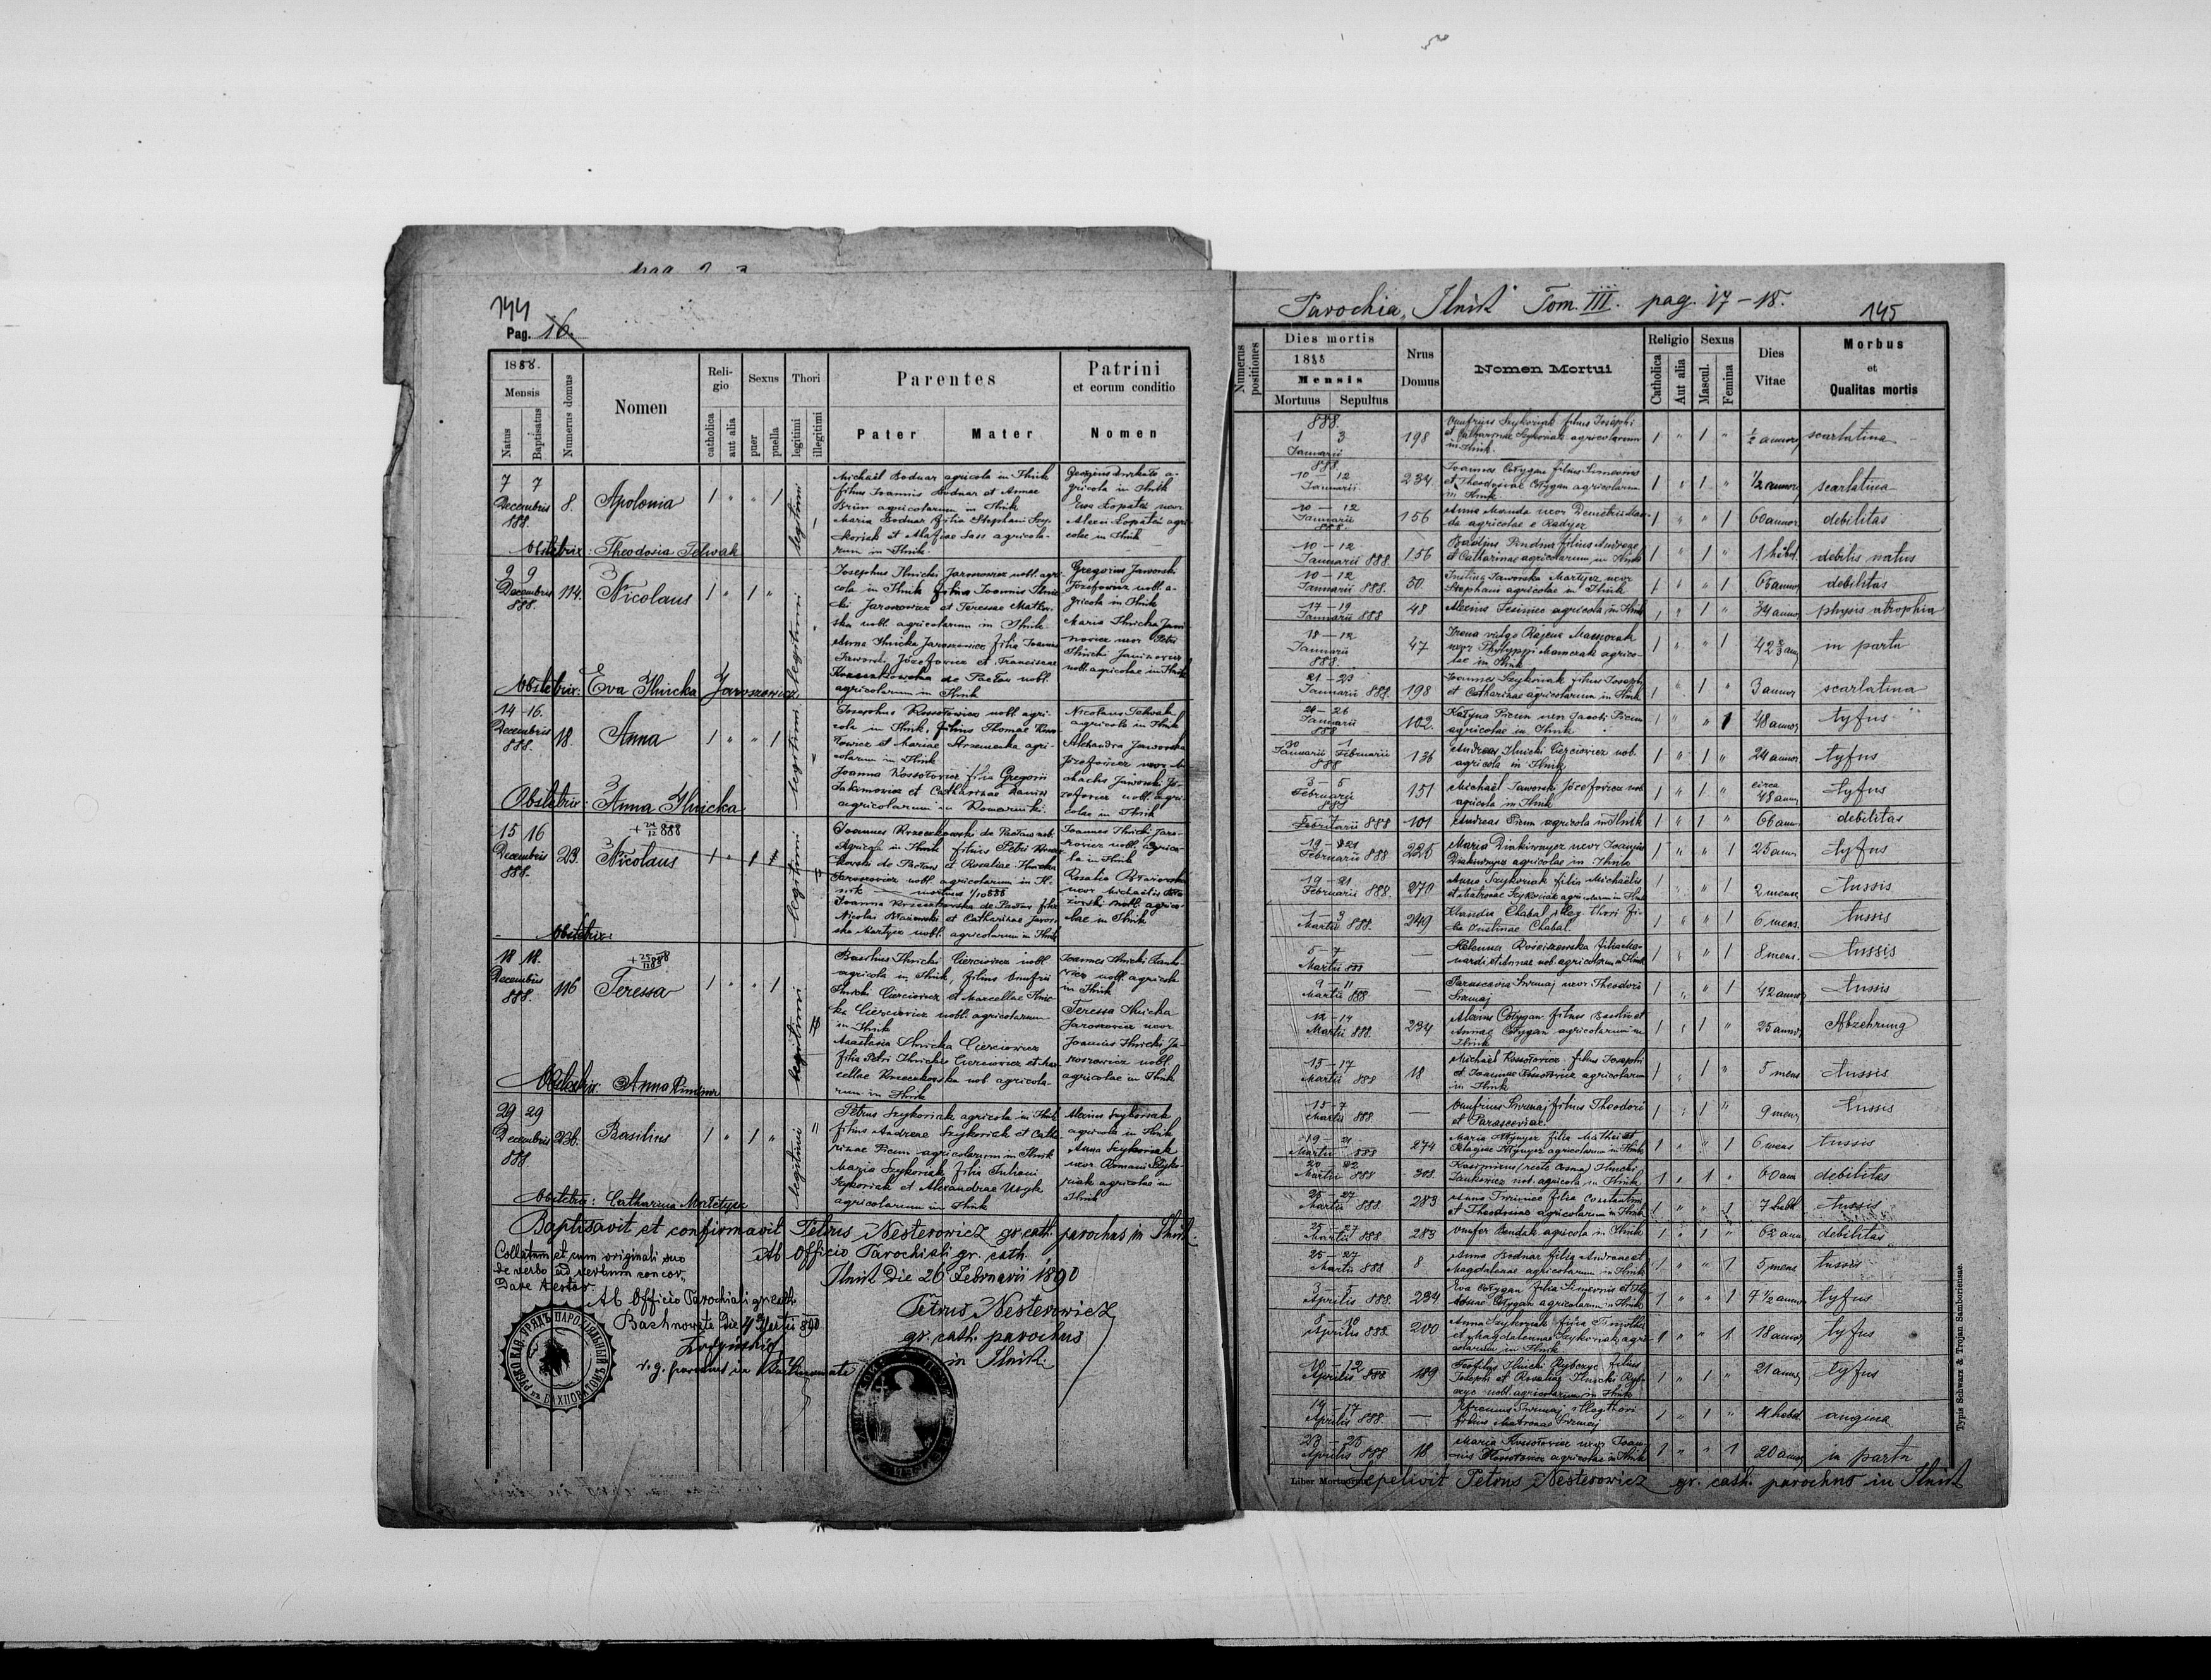 144
Pag. 16.
1888.
Mensis
Natus
Baptisatus
Numerus domus
Nomen
Religio
catholica
aut alia
Sexus
puer
puella
Thori
legitimi
illegitimi
Parentes
Pater
Mater
Patrini
et eorum conditio
Nomen
7 7
Decembris
888.
8.
Apolonia
1 " " 1
legitimi
Michaël Bodnar agricola in Ilnik
filius Joannis Bodnar et Annae
Brün agricolarum in Ilnik
Maria Bodnar filia Stephani Szy-
koriak et Mariae Sass agricola-
rum in Ilnik
agricola in Ilnik
Eva Łopatei uxor
Alexii Łopatei agri-
colae in Ilnik
Obstetrix: Theodosia Telwak
9 9
Decembris
888.
114.
Nicolaus
1 " 1 "
legitimi
Josephus Ilnicki Jaroszowicz nobl. agri-
cola in Ilnik filius Joannis Ilnic-
ki Jaroszowicz et Teresae
nobl. agricolarum in Ilnik
Anna Ilnicka Jaroszowicz filia Joannis
Jaworski Józefowicz et Franciscae
Kruszelnicka de Paetau nobl.
agricolarum in Ilnik
Gregorius Jaworski
Józefowicz nobl. a-
gricola in Ilnik
Maria Ilnicka Jani-
nowicz uxor Petri
Ilnicki Janinowicz
nobl. agricolae in Ilnik
Obstetrix: Eva Ilnicka Jaroszowicz
14 - 16.
Decembris
888.
18.
Anna
1 " " 1
legitimi
Josephus Kossołowicz nobl. agri-
cola in Ilnik, filius Thomae Kosso-
łowicz et Mariae agri-
colarum in Ilnik
Joanna Kossołowicz filia Gregorii
Jakimowicz et Catharinae
agricolarum in Komarniki
Nicolaus Telwak
agricola in Ilnik
Alexandra Jaworska
Józefowicz uxor Mi-
chaelis Jaworski Jó-
zefowicz nobl. agri-
colae in Ilnik
Obstetrix: Anna Ilnicka
15 16
Decembris
888.
23.
+ 24/12 888
Nicolaus
1 " 1
legitimi
Joannes de Paetau nob.
Agricola in Ilnik filius Petri
de Paetau et Rosaliae Ilnicka
Jaroszowicz nobl. agricolarum in Il-
nik
Joanna de Paetau filia
Nicolai et Catharinae Jawor-
ska Martycz nobl. agricolarum in Ilnik
Joannes Ilnicki Jaro-
szowicz nobl. agrico-
la in Ilnik
Rosalia
uxor Michaëlis
nobl. agrico-
lae in Ilnik
Obstetrix:
18 18.
Decembris
888.
116
Teressa
1 " " 1
legitimi
Basilius Ilnicki Cierciowicz nobl.
agricola in Ilnik, filius Onufrii
Ilnicki Cierciowicz et Marcellae Ilnic-
ka Cierciowicz nobl. agricolarum
in Ilnik
Anastasia Ilnicka Cierciowicz
filia Petri Ilnicki Cierciowicz et Mar-
cellae nob. agricola-
rum in Ilnik
Joannes Ilnicki Janko-
wicz nobl. agricola
in Ilnik
Teressa Ilnicka
Jaroszowicz uxor
Joannis Ilnicki Ja-
roszowicz nobl.
agricolae in Ilnik
Obstetrix: Anna
29 29
Decembris
888
236.
Basilius
1 " 1 "
legitimi
Petrus Szykoriak agricola in Ilnik
filius Andreae Szykoriak et Catha-
rinae Picun agricolarum in Ilnik
Maria Szykoriak filia Juliani
Szykoriak et Alexandrae
agricolarum in Ilnik
Alexius Szykoriak
agricola in Ilnik
Anna Szykoriak
uxor Romani Szyko-
riak agricolae in
Ilnik
Obstetrix: Catharina
Baptisavit et confirmavit Petrus Nesterowicz gr. cath. parochus in Ilnik.
Collatum et cum originali suo
de verbo ad verbum concor-
dare testor
Ab Officio Parochiali gr. cath.
Ilnik die 26 Februarii 1890
Ab Officio Parochiali gr. cath.
Bachnowate die 4 Martii 890
Petrus Nesterowicz
gr. cath. parochus
in Ilnik.
r. g. parochus in Bachnowate
Parochia „Ilnik" Tom. III. pag. 17 - 18.
145
Numerus positiones
Dies mortis
1888
Mensis
Mortuus
Sepultus
Nrus
Domus
Nomen Mortui
Religio
Catholica
Aut alia
Sexus
Mascul.
Femina
Dies
Vitae
Morbus
et
Qualitas mortis
888. 1 3 Januarii 198 Onufrius Szykoriak filius Josephi et Catharinae Szykoriak agricolarum in Ilnik. 1 " 1 " 1/2 annor. scarlatina
888. 10 12 Januarii 234. Joannes Cołygan filius Simeonis et Theodosiae Cołygan agricolarum in Ilnik 1 " 1 " 1/2 annor. scarlatina
10 - 12 Januarii 888. 156 Anna Manda uxor Demetrii Manda agricolae e Radycz 1 " " 1 60 annor. debilitas
10 - 12 Januarii 888. 156 Basilius filius Andreae et Catharinae agricolarum in Ilnik 1 " 1 " 1 hebd. debilis natus
10 - 12 Januarii 888. 50. Justina Jaworska Martycz uxor Stephani agricolae in Ilnik 1 " " 1 65 annor. debilitas
17 - 19 Januarii 888 48 Alexius agricola in Ilnik 1 " 1 " 34 annor. physis atrophia
Januarii 888. 47 in Ilnik 1 " " 1 in partu
21 - 23 Januarii 888. 198 Joannes Szykoriak filius Josephi et Catharinae agricolarum in Ilnik 1 " 1 " 3 annor. scarlatina
Januarii 888 102. Katyna Picun uxor Jacobi Picun agricolae in Ilnik 1 " " 1 48 annor. tyfus
30 Januarii - 1 Februarii 888 136 Andreas Ilnicki Cierciowicz nob. agricola in Ilnik 1 " 1 " 24 annor. tyfus
3 - 5 Februarii 888 151 Michaël Jaworski Józefowicz nob. agricola in Ilnik 1 " 1 " circa 48 ann. tyfus
Februarii 888 101 Andreas Picun agricola in Ilnik 1 " 1 " 66 ann. debilitas
19 - 21 Februarii 888. 226 Maria uxor Joannis agricolae in Ilnik 1 " " 1 25 ann. tyfus
19 - 21 Februarii 888. 270 Anna Szykoriak filia Michaëlis et Matronae Szykoriak agricolarum in Ilnik 1 " " 1 2 mens. tussis
1 - 3 Martii 888. 249 Chabal illeg. thori filia Justinae Chabal. 1 " " 1 6 mens. tussis
5 - 7 Martii 888 — Helenna filia et Annae nob. agricolarum in Ilnik 1 " " 1 8 mens. tussis
9 - 11 Martii 888 — Parascevia uxor Theodori 1 " " 1 42 annor. tussis
12 - 14 Martii 888. 234 Alexius Cołygan filius Basilii et Annae Cołygan agricolarum in Ilnik 1 " 1 " 25 annor. Abzehrung
15 - 17 Martii 888 18 Michaël Kossołowicz filius Josephi et Joannae Kossołowicz agricolarum in Ilnik 1 " 1 " 5 mens tussis
Martii 888. — Onufrius filius Theodori et Parasceviae 1 " 1 " 9 mens. tussis
19 - 21 Martii 888 274 Maria filia Mathei et Pelagiae agricolarum in Ilnik 1 " " 1 6 mens tussis
20 22 Martii 888 308. Kasimirus (recte Cosma) Ilnicki Jankowicz nob. agricola in Ilnik 1 " 1 " 60 ann debilitas
25 27 Martii 888. 283 Anna filia Constantini et Theodosiae agricolarum in Ilnik 1 " " 1 7 hebd. tussis
25 - 27 Martii 888. 283 Onufer agricola in Ilnik 1 " 1 " 62 ann. debilitas
25 - 27 Martii 888 8 Anna Bodnar filia Andreae et Magdalenae agricolarum in Ilnik 1 " " 1 5 mens tussis
3 - 5 Aprilis 888. 234 Eva Cołygan filia Simeonis et Theodosiae Cołygan agricolarum in Ilnik 1 " " 1 7 1/2 annor. tyfus
8 - 10 Aprilis 888. 200 Anna Szykoriak filia Timothei et Magdalenae Szykoriak agricolarum in Ilnik 1 " " 1 18 annor. tyfus
10 - 12 Aprilis 888 189 Teofilus Ilnicki Rybczyc filius Josephi et Rosaliae Ilnicki Rybczyc nobl. agricolarum in Ilnik 1 " 1 " 21 annor. tyfus
14 - 17 Aprilis 888. — illeg. thori filius Matronae 1 " 1 " 4 hebd. angina
23 - 25 Aprilis 888 18. Maria Kossołowicz uxor Joannis Kossołowicz agricolae in Ilnik 1 " " 1 20 annor. in partu
Liber Mortuorum
Sepelivit Petrus Nesterowicz gr. cath. parochus in Ilnik
Typis Schwarz & Trojan Samboriensae.